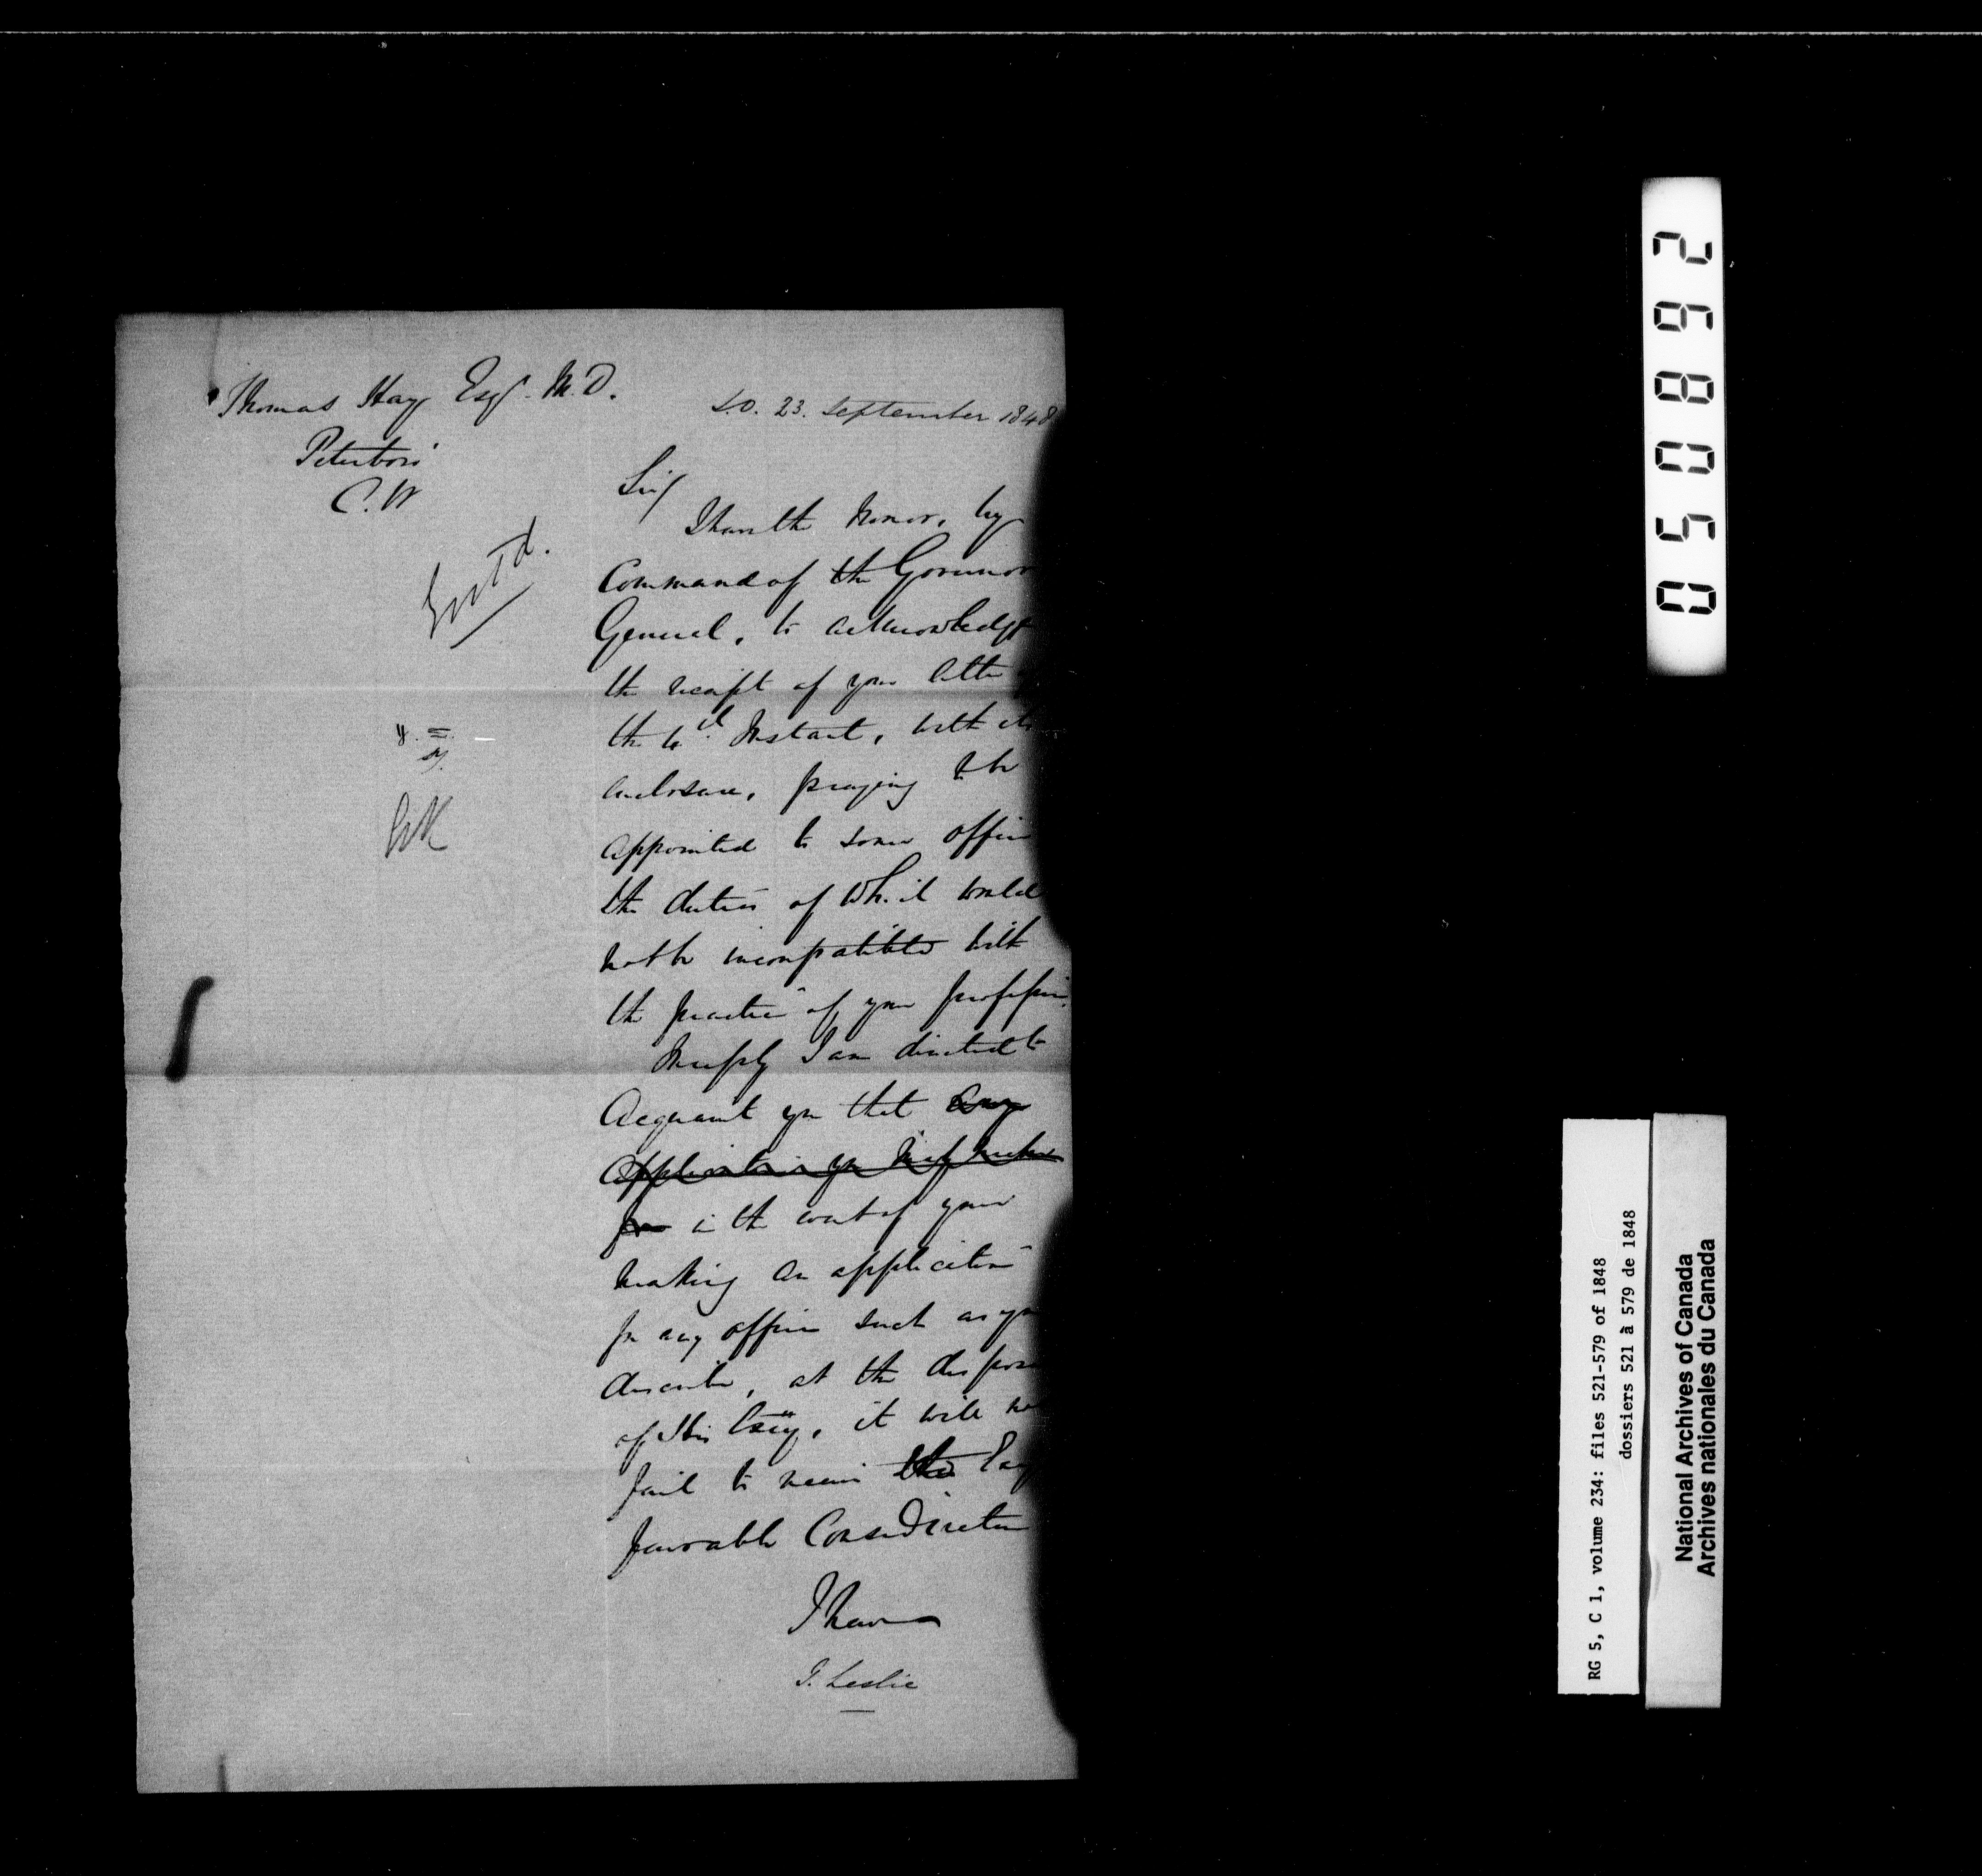 Thomas Hay Esqr. M.D.
Peterboro'
C.W
S.O. 23. September 1848
Sir/
I have the honor, by
Command of the Governor
General, to acknowledge
the receipt of your letter
the Instant, with its
enclosure, praying to be
appointed to some office
the duties of which would
not be incompatible with
the practice of your profession.
In reply I am directed to
Acquaint you that any
application you may make
for in the event of your
making an application
for any office such as you
describe, at the
of His Excy, it will no
fail to receive the
favorable Consideration
I have
J. Leslie
Entd.
0 5 0 8 9 2
RG 5, C 1, volume 234: files 521-579 of 1848
dossiers 521 à 579 de 1848
National Archives of Canada
Archives nationales du Canada